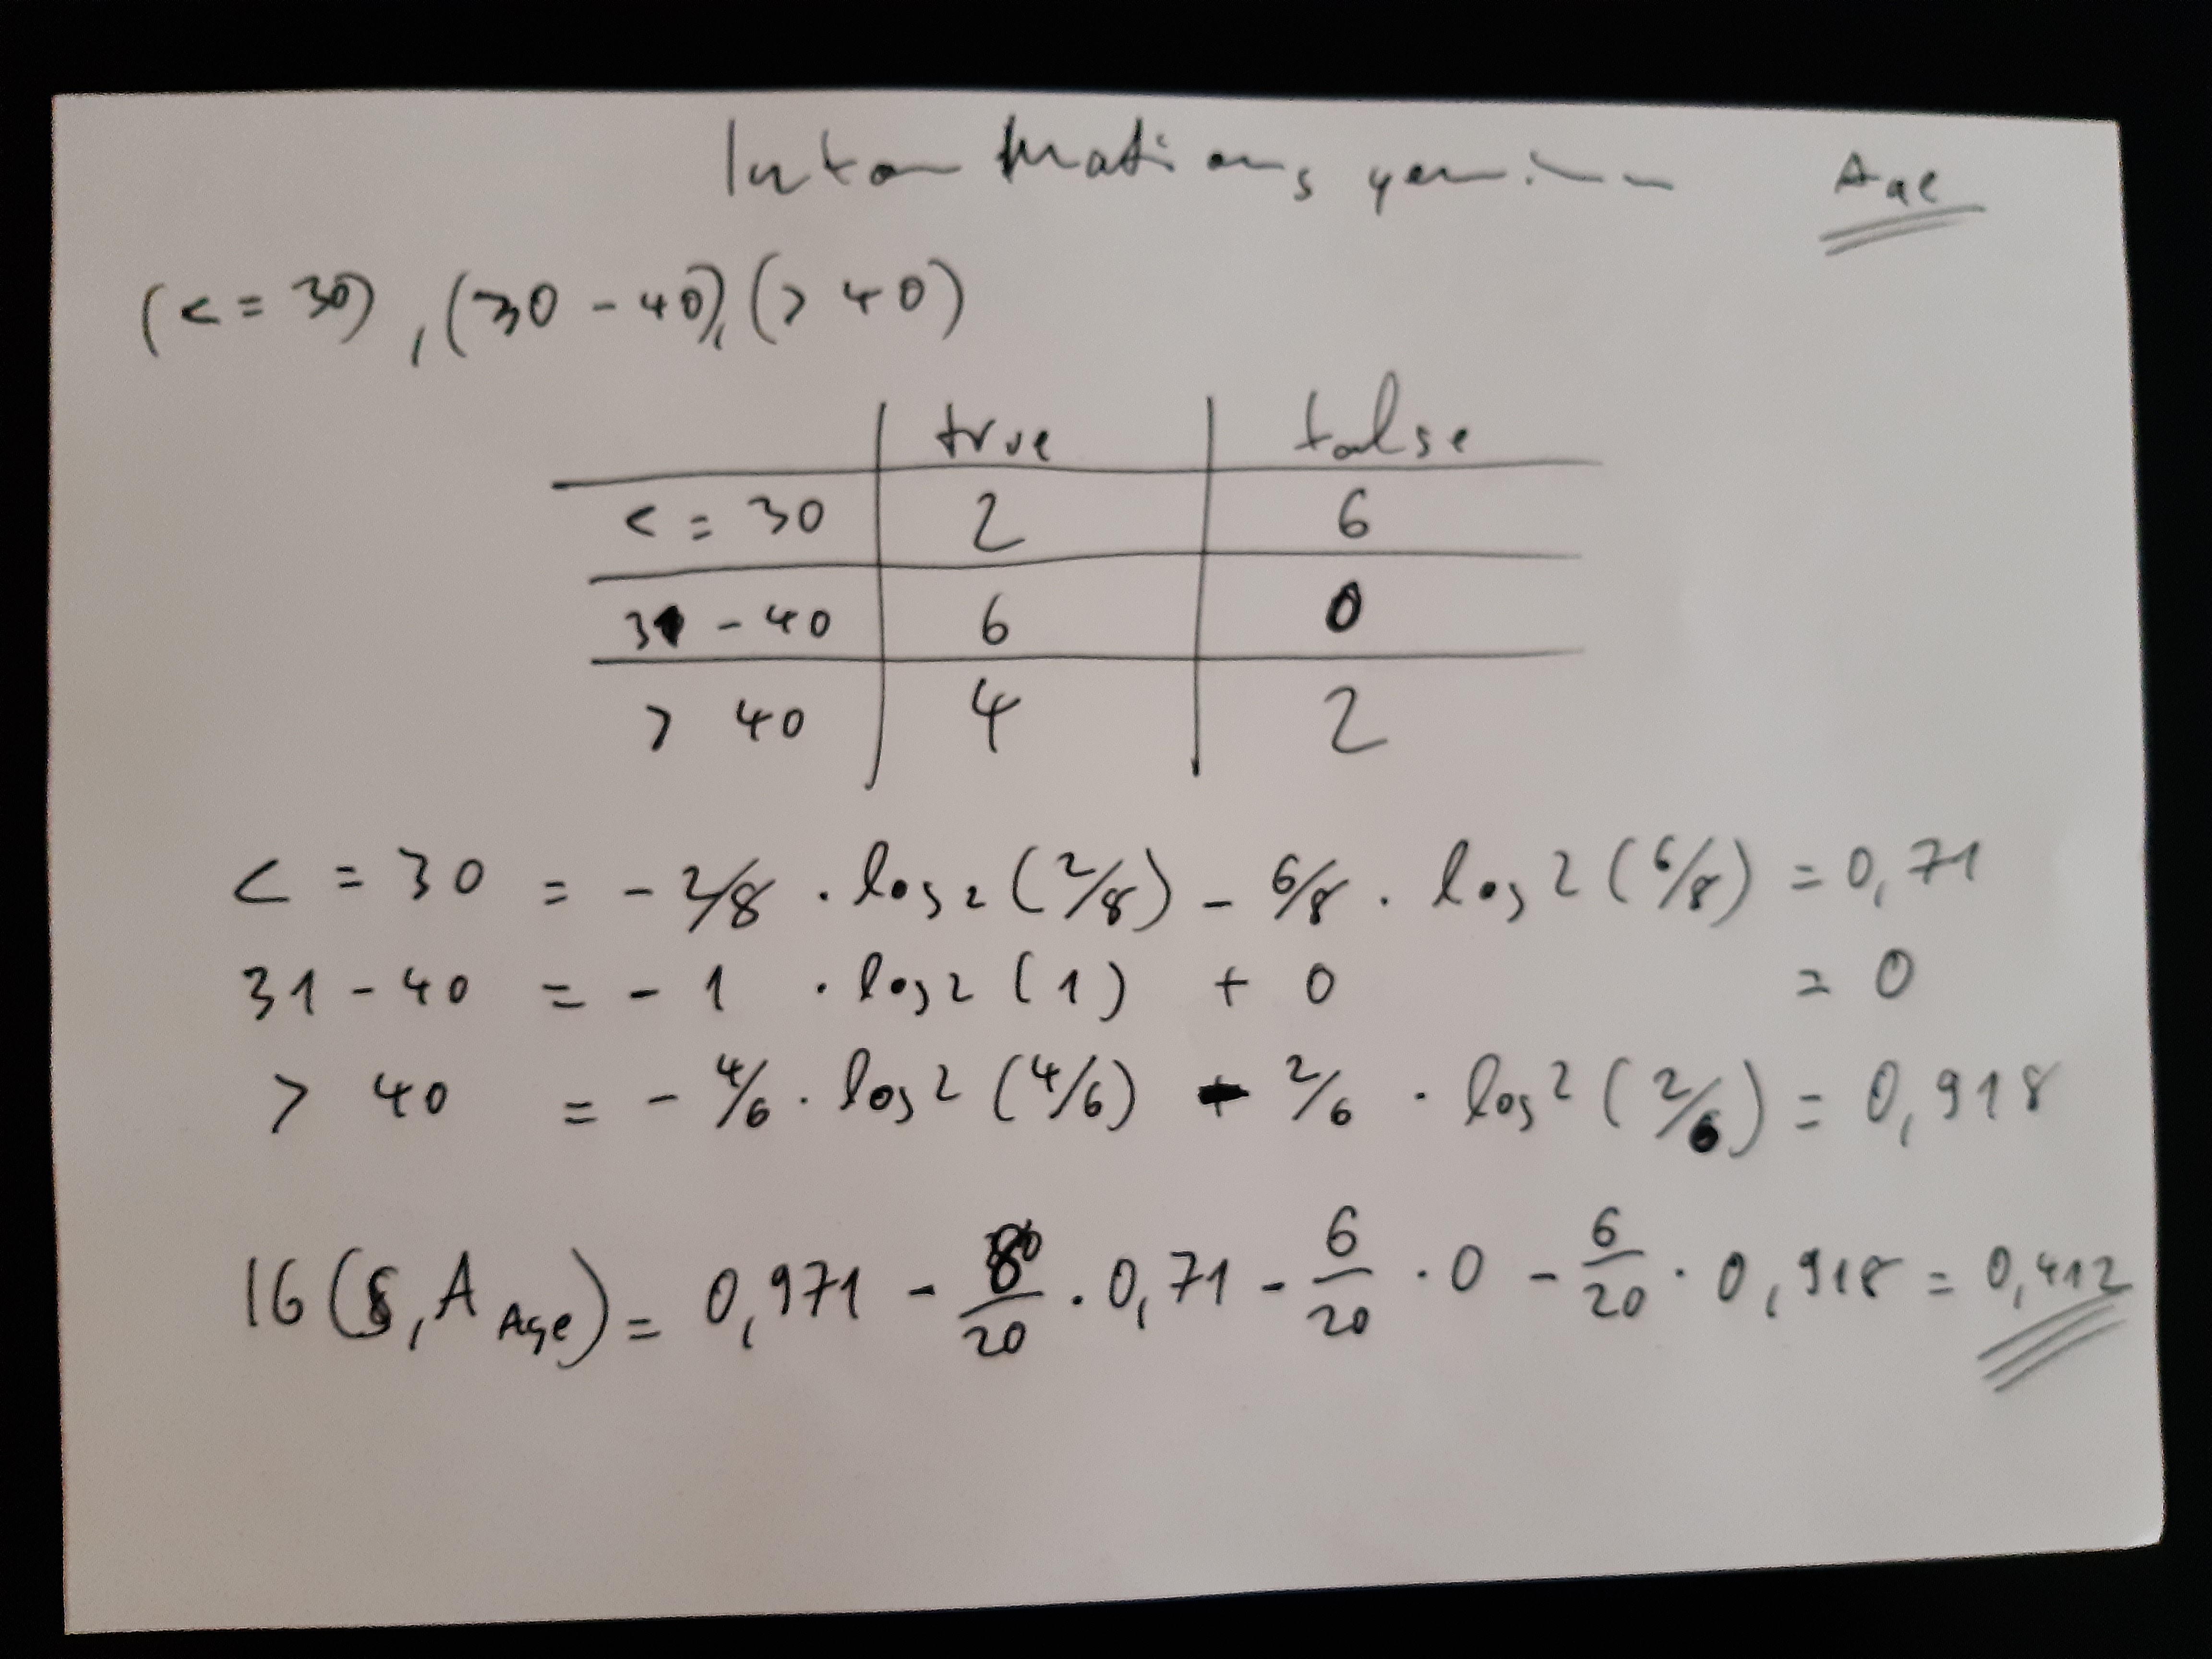 Informationsgewinn Age
(<= 30), (30-40), (> 40)
true false
<= 30 2 6
31-40 6 0
> 40 4 2
<= 30 = - 2/8 · log2 (2/8) - 6/8 · log2 (6/8) = 0,71
31-40 = - 1 · log2 (1) + 0 = 0
> 40 = - 4/6 · log2 (4/6) - 2/6 · log2 (2/6) = 0,918
IG (S, A Age) = 0,971 - 8/20 · 0,71 - 6/20 · 0 - 6/20 · 0,918 = 0,412